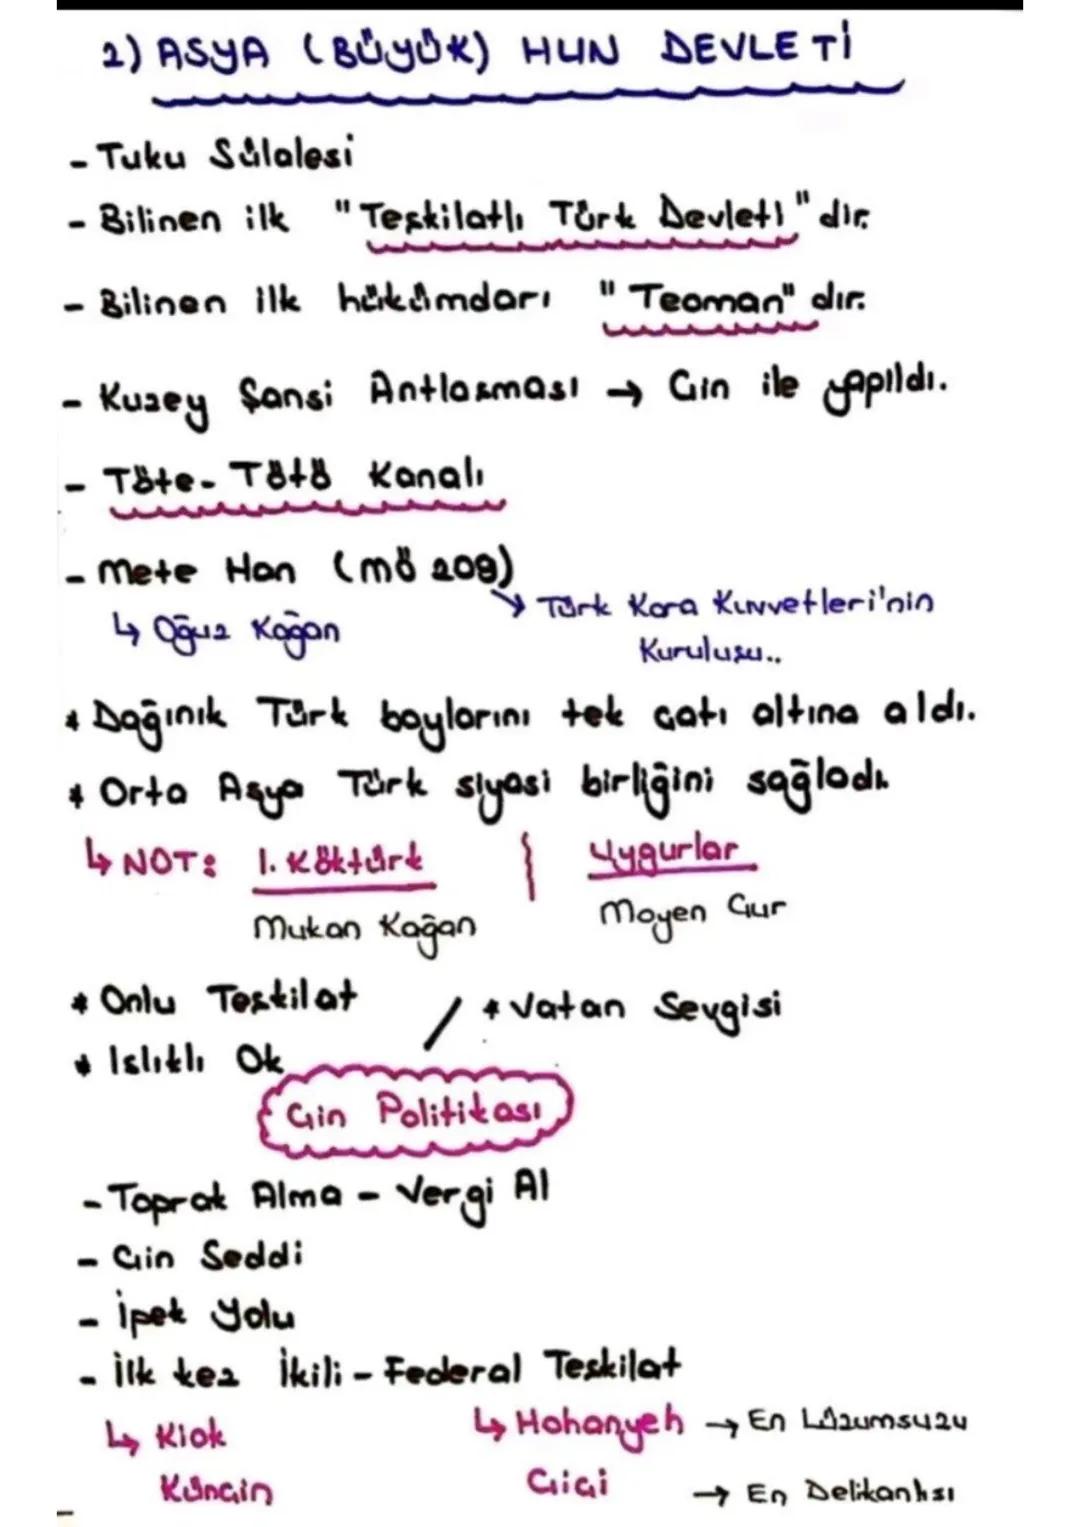 2) ASYA (BÜYÜK) HUN DEVLETİ
- Tuku Sülalesi
- Bilinen ilk "Teşkilatlı Türk Devleti" dir.
- Bilinen ilk hükümdarı "Teoman" dır.
- Kuzey Şansi Antlaşması → Çin ile yapıldı.
- Töte-Tötö Kanalı
- Mete Han (MÖ 209)
↳ Oğuz Kağan
↘ Türk Kara Kuvvetleri'nin Kuruluşu..
* Dağınık Türk boylarını tek çatı altına aldı.
* Orta Asya Türk siyasi birliğini sağladı.
↳ NOT: 1. Köktürk | Uygurlar
Mukan Kağan Moyen Çur
* Onlu Teşkilat / * Vatan Sevgisi
* Islıklı Ok
Çin Politikası
- Toprak Alma - Vergi Al
- Çin Seddi
- İpek Yolu
- İlk kez İkili - Federal Teşkilat
↳ Kiok ↳ Hohanyeh → En Lüzumsuzu
Künçin Çiçi → En Delikanlısı